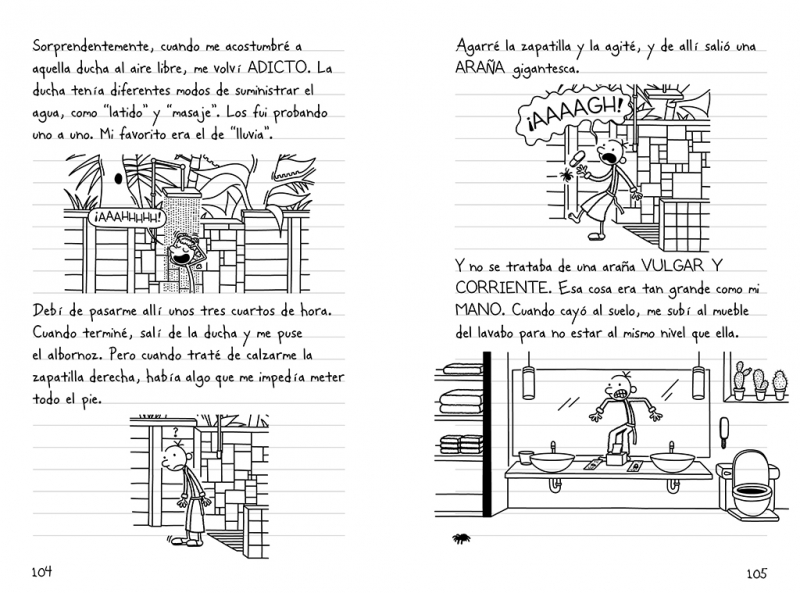 Sorprendentemente, cuando me acostumbré a
aquella ducha al aire libre, me volví ADICTO. La
ducha tenía diferentes modos de suministrar el
agua, como "latido" y "masaje". Los fui probando
uno a uno. Mi favorito era el de "lluvia".
¡AAAHHHHH!
Debí de pasarme allí unos tres cuartos de hora.
Cuando terminé, salí de la ducha y me puse
el albornoz. Pero cuando traté de calzarme la
zapatilla derecha, había algo que me impedía meter
todo el pie.
?
104
Agarré la zapatilla y la agité, y de allí salió una
ARAÑA gigantesca.
¡AAAAGH!
Y no se trataba de una araña VULGAR Y
CORRIENTE. Esa cosa era tan grande como mi
MANO. Cuando cayó al suelo, me subí al mueble
del lavabo para no estar al mismo nivel que ella.
105